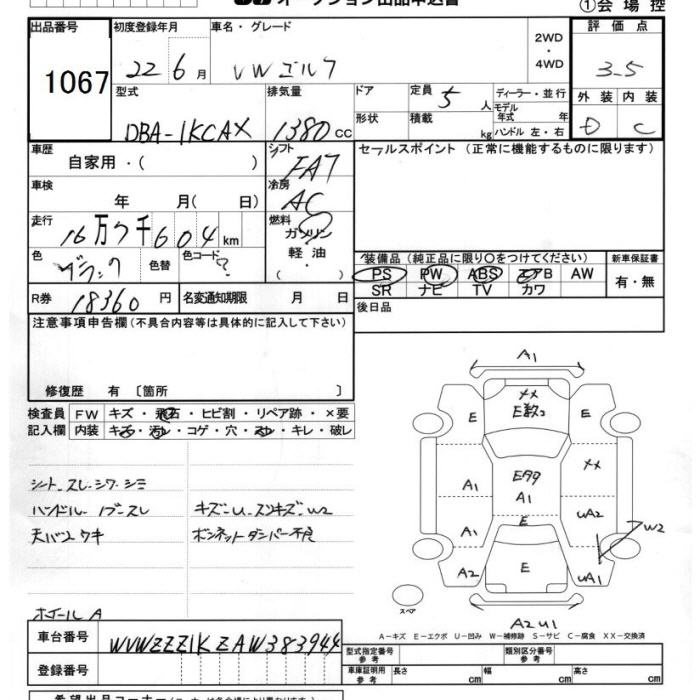 オークション出品申込書
①会場控
出品番号 1067
初度登録年月 22 6月
車名・グレード VW ゴルフ
2WD・4WD
評価点 3.5
型式 DBA-1KCAX
排気量 1380cc
ドア
形状
定員 5人
積載 kg
ディーラー・並行
モデル年式 年
ハンドル 左・右
外装 D
内装 C
車歴 自家用・( )
シフト FA7
セールスポイント(正常に機能するものに限ります)
車検 年 月( 日)
冷房 AC
走行 16万7千604km
燃料 ガソリン 軽油・( )
色 ブラック
色替
色コード ?
装備品(純正品に限り○をつけてください)
PS PW ABS エアB AW
SR ナビ TV カワ
新車保証書
有・無
R券 18360円
名変通知期限 月 日
後日品
注意事項申告欄(不具合内容等は具体的に記入して下さい)
修復歴 有 〔箇所 〕
検査員記入欄
FW キズ・飛石・ヒビ割・リペア跡・×要
内装 キズ・汚レ・コゲ・穴・スレ・キレ・破レ
シート スレ・シワ・シミ
ハンドル・ノブ スレ
キズ・U・スリキズ・W2
天バリ ウキ
ボンネットダンパー不良
ホイールA
A1
XX
E数コ
E
E
A1
E
A1
XX
A1
UA2
W2
E
A2
E
UA1
スペア
A2U1
A-キズ E-エクボ U-凹み W-補修跡 S-サビ C-腐食 XX-交換済
車台番号 WVWZZZ1KZAW383944
登録番号
型式指定番号 参考
類別区分番号 参考
車庫証明用 参考
長さ cm
幅 cm
高さ cm